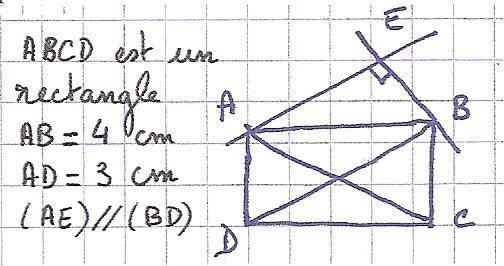 ABCD est un
rectangle
AB = 4 cm
AD = 3 cm
(AE)//(BD)
E
A
B
D
C